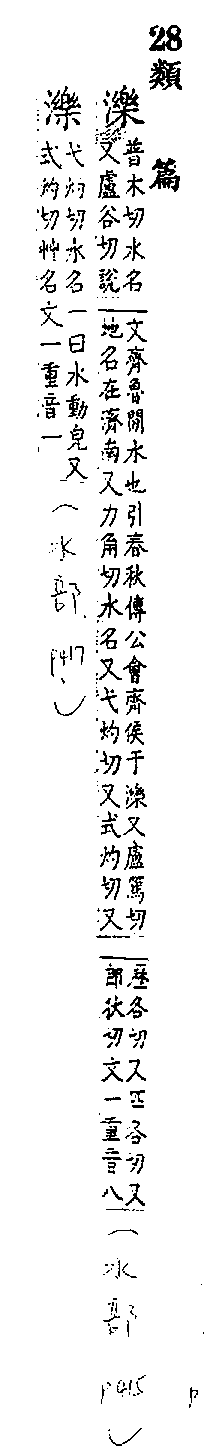 28 類篇
濼
普木切水名
又盧谷切說
文齊魯間水也引春秋傳公會齊侯于濼又盧篤切
地名在濟南又力角切水名又弋灼切又式灼切又
歷各切又匹各切又
郎狄切文一重音八
(水部 p415)
濼
弋灼切水名一曰水動皃又
式灼切艸名文一重音一
(水部 p417)
p